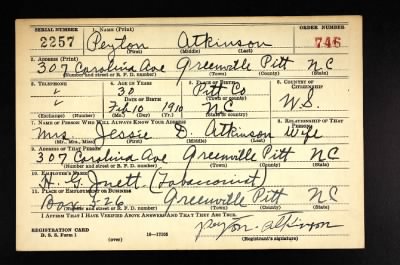 SERIAL NUMBER 1. NAME (Print) ORDER NUMBER
2257 Peyton Atkinson 746
(First) (Middle) (Last)
2. ADDRESS (Print)
307 Carolina Ave Greenville Pitt NC
(Number and street or R. F. D. number) (Town) (County) (State)
3. TELEPHONE 4. AGE IN YEARS 5. PLACE OF BIRTH 6. COUNTRY OF CITIZENSHIP
30 Pitt Co
DATE OF BIRTH (Town or county)
Feb 10 1910 NC U.S.
(Exchange) (Number) (Mo.) (Day) (Yr.) (State or country)
7. NAME OF PERSON WHO WILL ALWAYS KNOW YOUR ADDRESS 8. RELATIONSHIP OF THAT PERSON
Mrs. Jessie D. Atkinson Wife
(Mr., Mrs., Miss) (First) (Middle) (Last)
9. ADDRESS OF THAT PERSON
307 Carolina Ave Greenville Pitt NC
(Number and street or R. F. D. number) (Town) (County) (State)
10. EMPLOYER'S NAME
H. (Tobacconist)
11. PLACE OF EMPLOYMENT OR BUSINESS
Box 526 Greenville Pitt NC
(Number and street or R. F. D. number) (Town) (County) (State)
I AFFIRM THAT I HAVE VERIFIED ABOVE ANSWERS AND THAT THEY ARE TRUE.
REGISTRATION CARD Peyton Atkinson
D. S. S. Form 1 (over) 16—17105 (Registrant's signature)